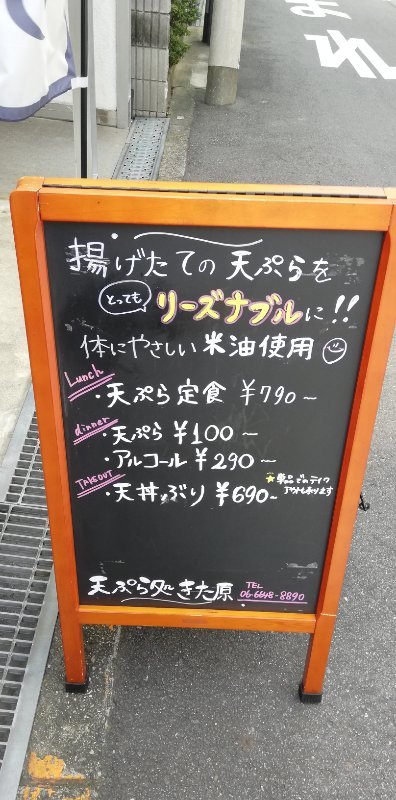 揚げたての天ぷらを
とっても
リーズナブルに!!
体にやさしい米油使用
Lunch
・天ぷら定食 ¥790〜
dinner
・天ぷら ¥100〜
・アルコール ¥290〜
TAKEOUT
★単品でのテイク
アウトも承ります
・天丼ぶり ¥690〜
天ぷら処 きた原
TEL
06-6648-8890